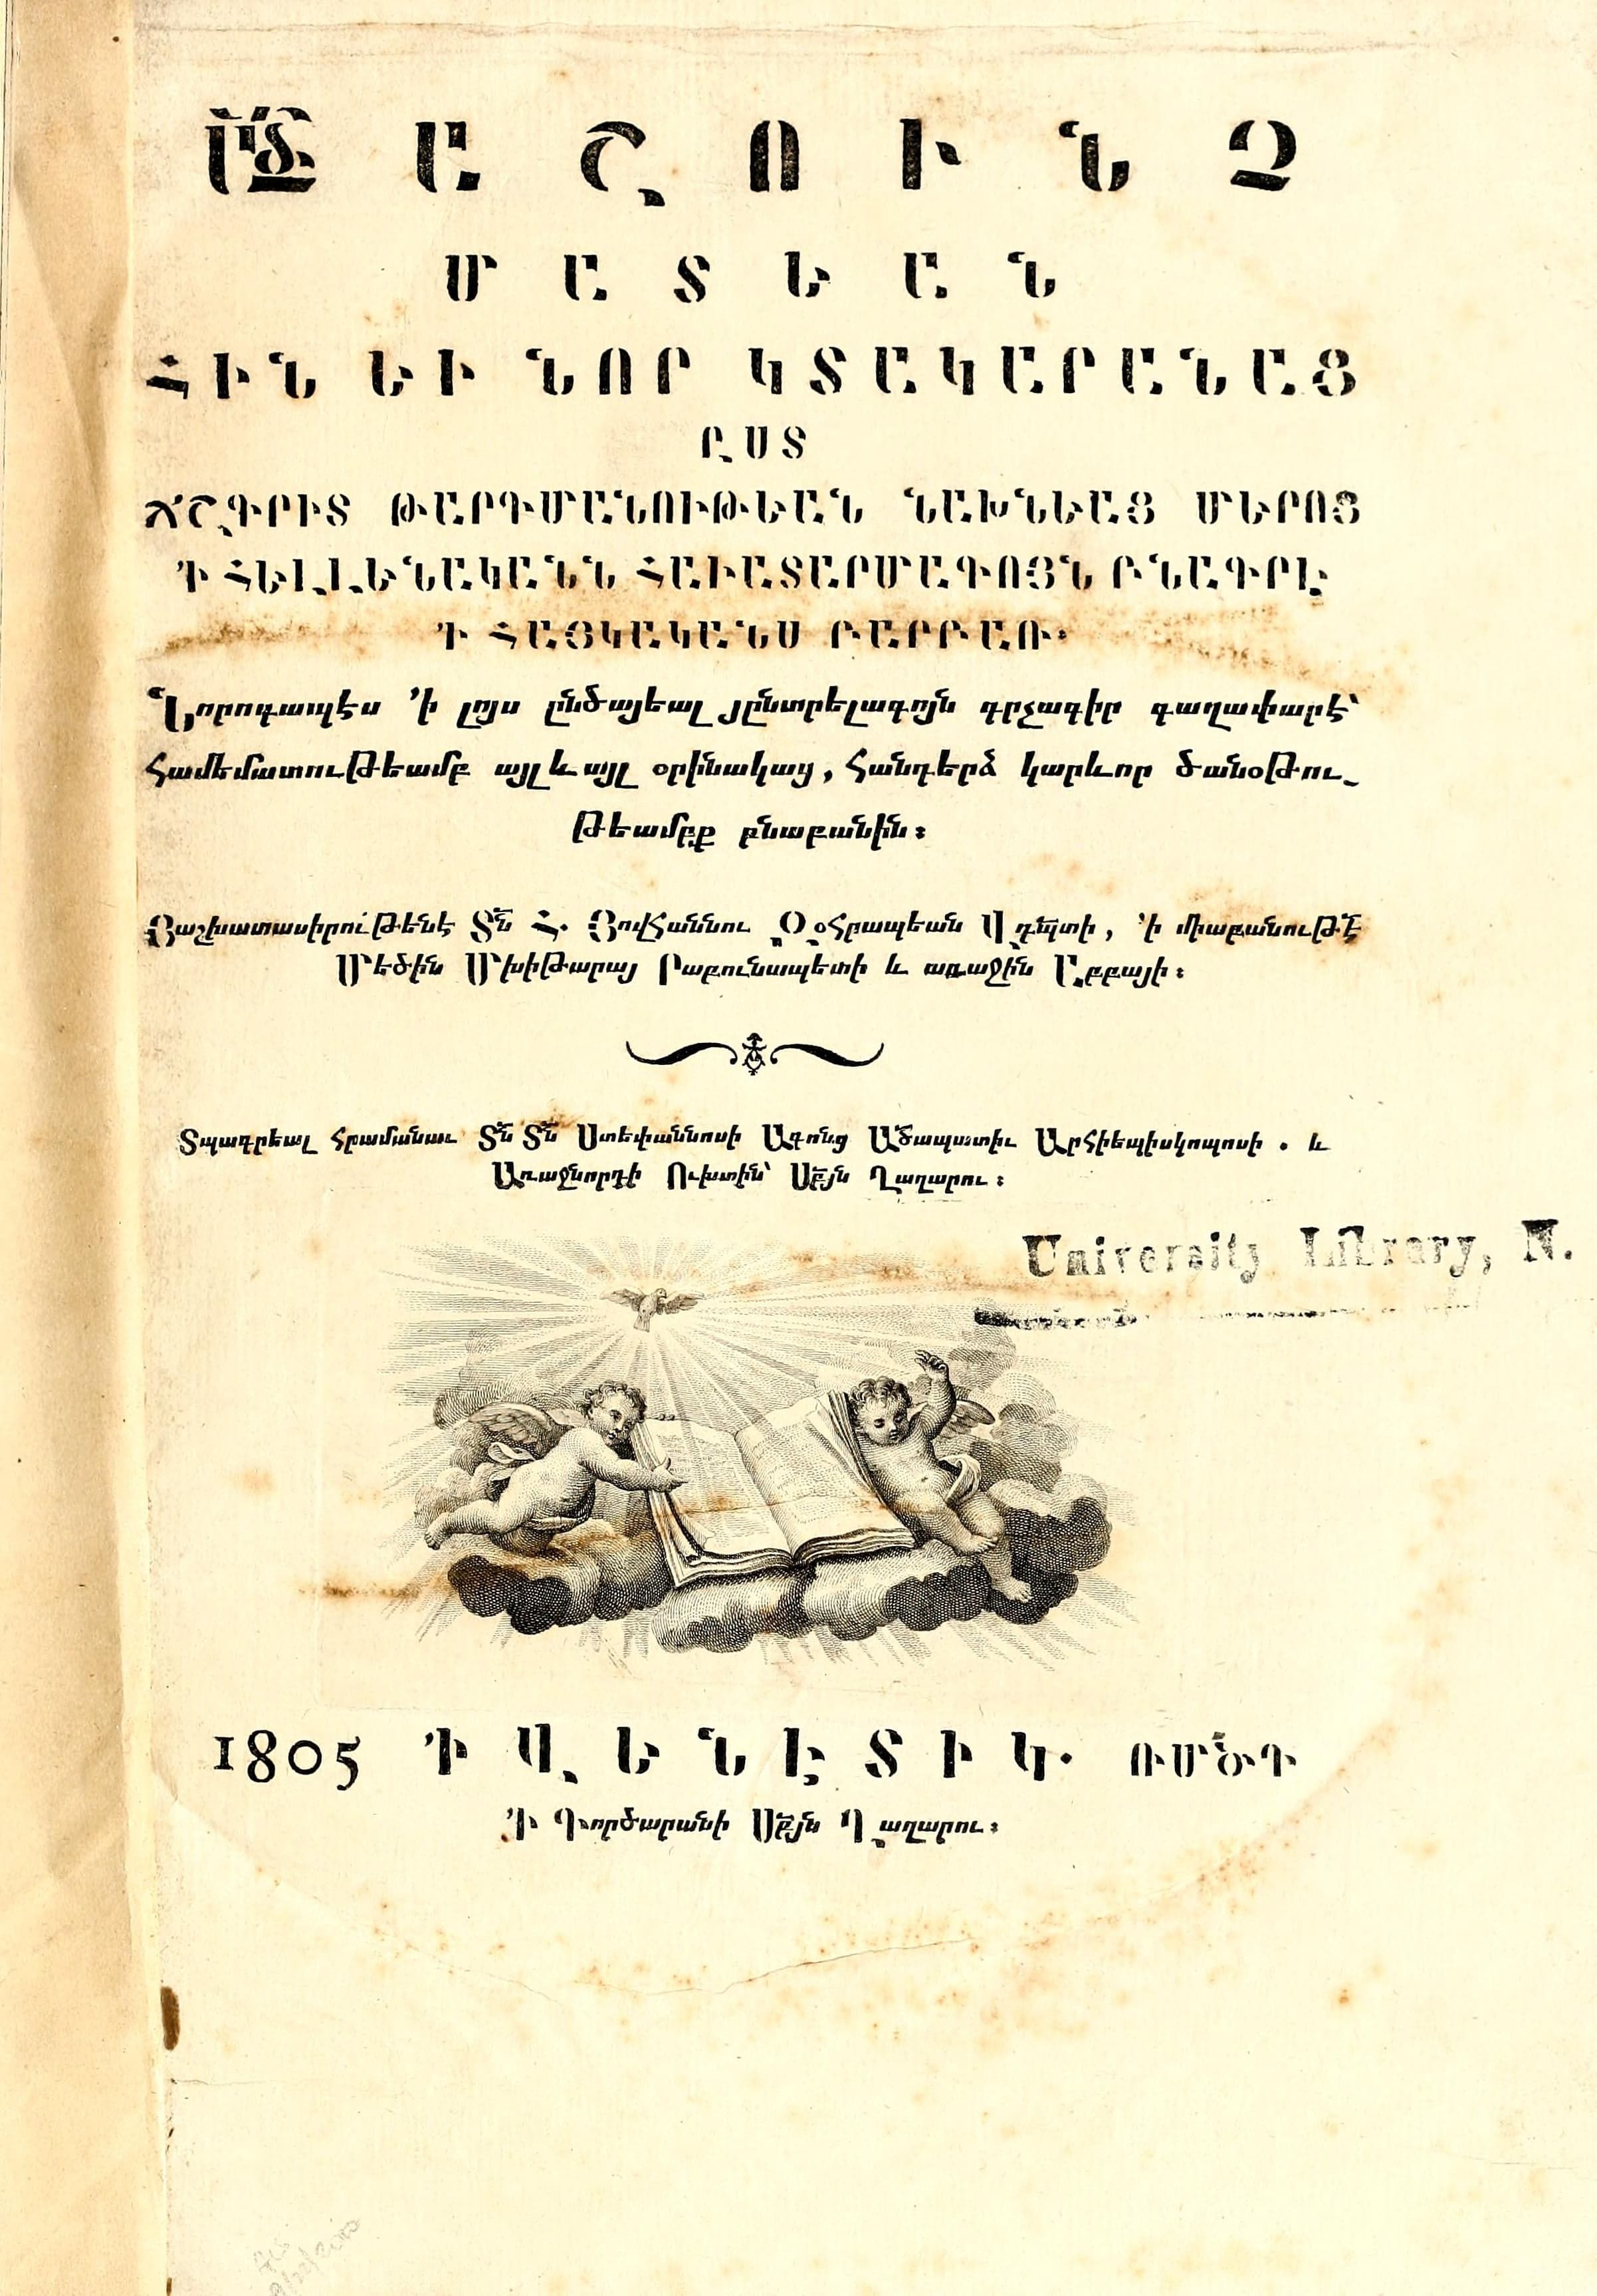 ԱՍՏՈՒԱԾԱՇՈՒՆՉ
ՄԱՏԵԱՆ
ՀԻՆ ԵՒ ՆՈՐ ԿՏԱԿԱՐԱՆԱՑ
ԸՍՏ
ՃՇԳՐԻՏ ԹԱՐԳՄԱՆՈՒԹԵԱՆ ՆԱԽՆԵԱՑ ՄԵՐՈՑ
Ի ՀԵԼԼԵՆԱԿԱՆՆ ՀԱՒԱՏԱՐՄԱԳՈՅՆ ԲՆԱԳՐԷ
Ի ՀԱՅԿԱԿԱՆՍ ԲԱՐԲԱՌ.
Նորոգապէս ՚ի լոյս ընծայեալ յընտրելագոյն գրչագիր գաղափարէ՝
Համեմատութեամբ այլևայլ օրինակաց, հանդերձ կարևոր ծանօթու֊
թեամբք բնաբանին։
Յաշխատասիրութենէ Տն Հ. Յովհաննու Զօհրապեան Վրդպտի, ՚ի միաբանութէ
Մեծին Մխիթարայ Րաբունապետի և առաջին Աբբայի։
Տպագրեալ հրամանաւ Տն Տն Ստեփաննոսի Ագոնց Ածապատիւ Արհիեպիսկոպոսի . և
Առաջնորդի Ուխտին՝ Սրբյն Ղազարու։
University Library, N.
1805 Ի ՎԵՆԷՏԻԿ. ՌՄԾԴ
Ի Գործարանի Սրբյն Ղազարու։